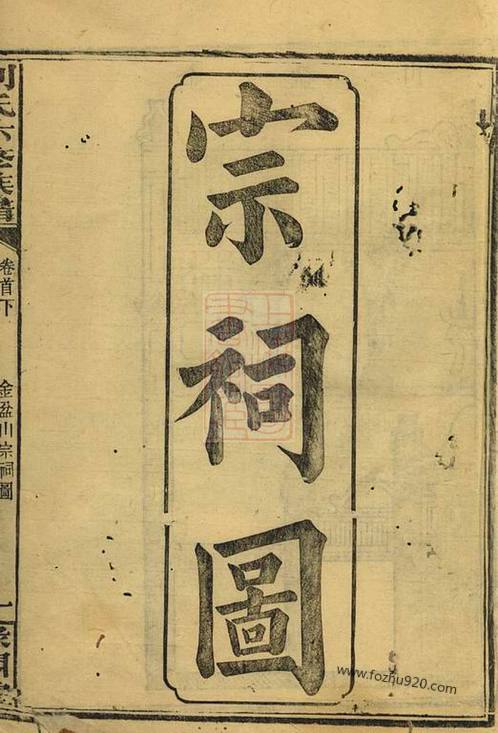 宗祠圖
劉氏六修族譜
卷首下
金盆山宗祠圖
一
www.fozhu920.com